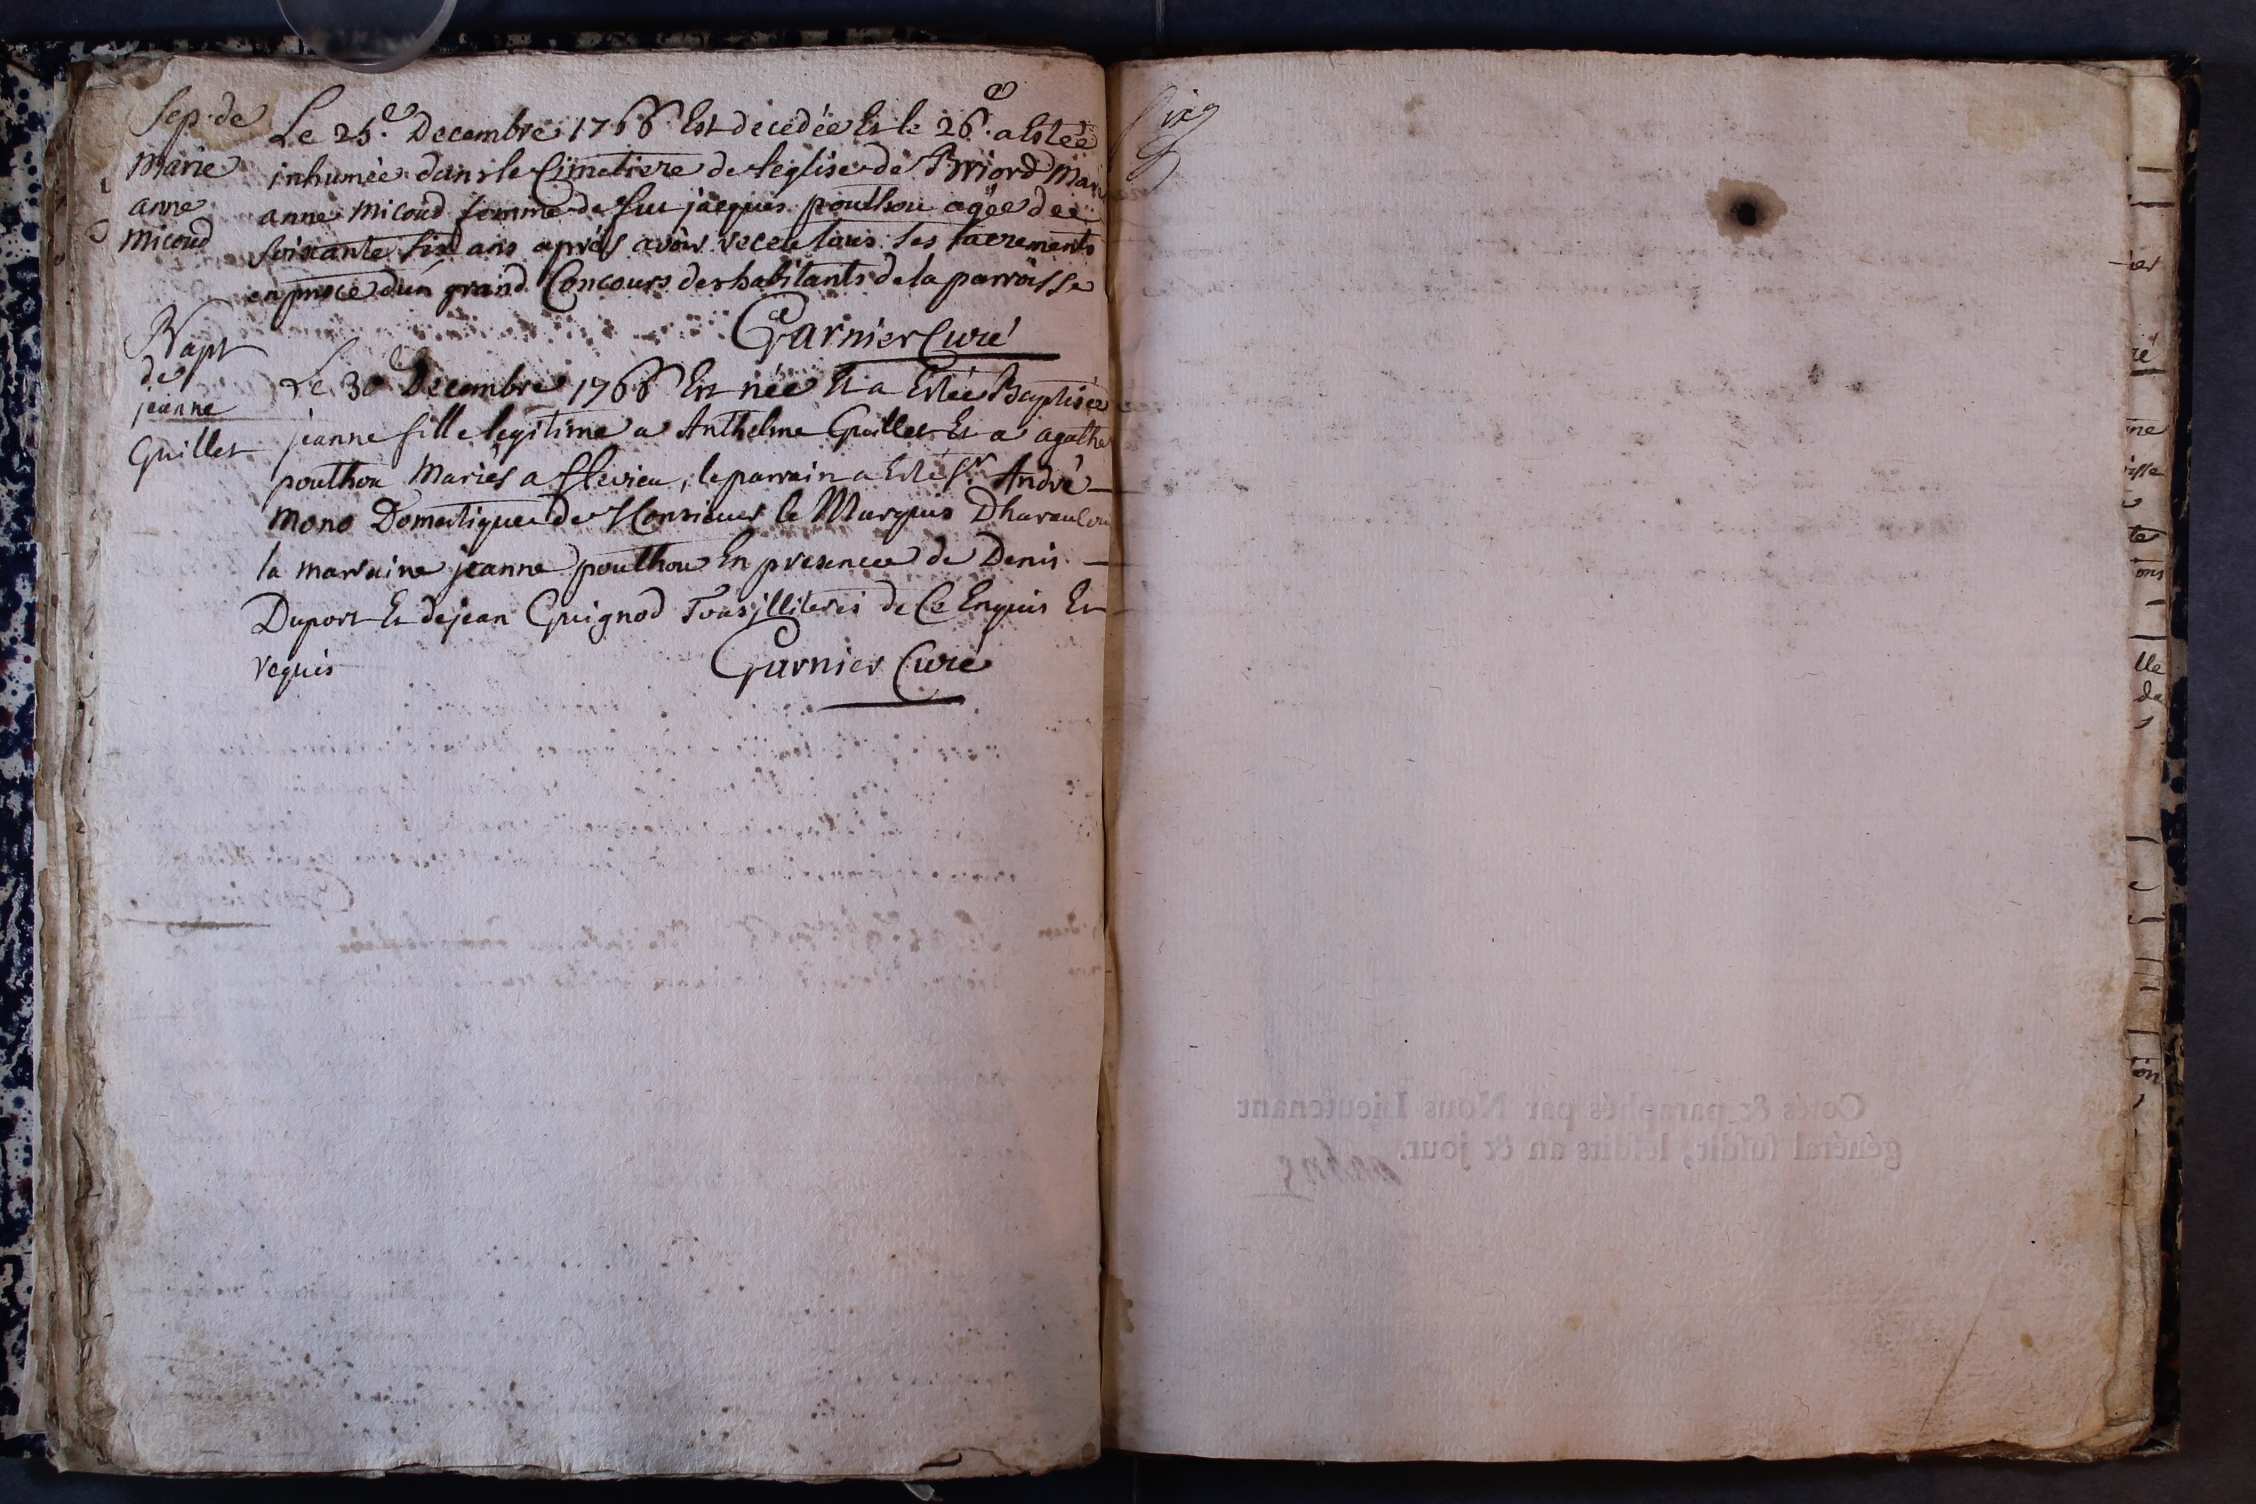 Sep. de
Marie
anne
Micoud
Le 25.e Decembre 1766 Est decedée Et le 26.e a Estée
inhumée dans le Cimetiere de l'eglise de Briord Marie
anne Micoud femme de feu jacques pouthou agée de
soixante six ans aprés avoir receu tous ses sacrements
en pnsce d'un grand Concours des habitants de la parroisse
Garnier Curé
Bapt
de
jeanne
Guillet
Le 30e Decembre 1766 Est née Et a Estée Baptisée
jeanne fille legitime a Anthelme Guillet Et a agathe
pouthou Mariés a flevieu, le parrain a Esté Sr André
Mono Domestique de Monsieur le Marquis
la marraine jeanne pouthou En presence de Denis
Duport Et de jean Guignod Tous jlliterés de Ce Enquis Et
requis
Garnier Curé
Six
Cotés & paraphés par Nous Lieutenant
général susdit, lesdits an & jour.